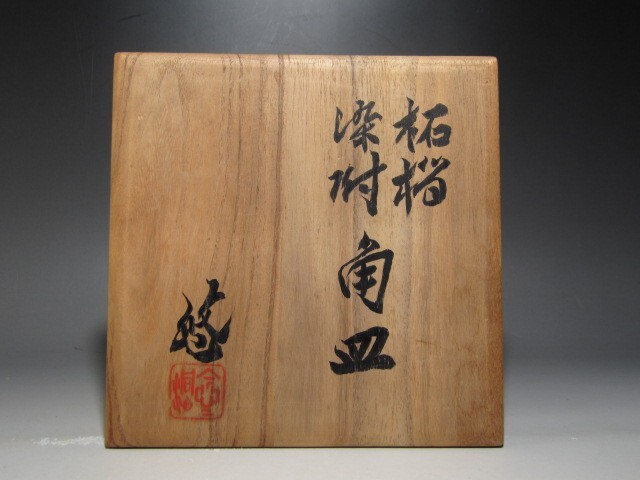 柘榴
染附 角皿
悠